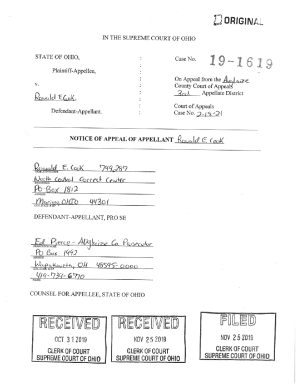 ORIGINAL
IN THE SUPREME COURT OF OHIO
STATE OF OHIO, : Case No. 19-1619
Plaintiff-Appellee, :
v. : On Appeal from the Auglaize
County Court of Appeals
Ronald E. Cook, : 3rd Appellate District
Defendant-Appellant. : Court of Appeals
Case No. 2-19-21
NOTICE OF APPEAL OF APPELLANT Ronald E. Cook
Ronald E. Cook 749,287
North Central Correct Center
PO Box 1812
Marion OHIO 44301
DEFENDANT-APPELLANT, PRO SE
Ed Pierce - Auglaize Co Prosecutor
PO Box 1992
Wapakoneta, OH 45895-0000
419-739-6770
COUNSEL FOR APPELLEE, STATE OF OHIO
RECEIVED
OCT 31 2019
CLERK OF COURT
SUPREME COURT OF OHIO
RECEIVED
NOV 25 2019
CLERK OF COURT
SUPREME COURT OF OHIO
FILED
NOV 25 2019
CLERK OF COURT
SUPREME COURT OF OHIO